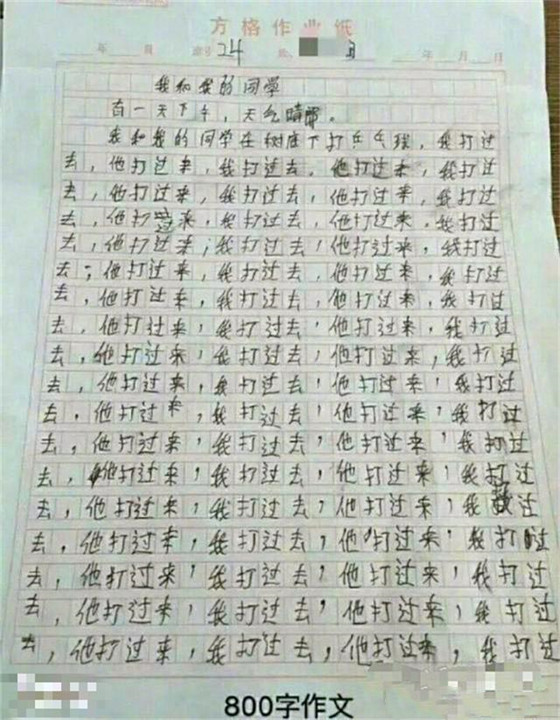 方格作业纸
年 月 24 年 月 日
我和我的同学
有一天下午，天气晴朗。
我和我的同学在树底下打乒乓球，我打过
去，他打过来，我打过去，他打过来，我打过
去，他打过来，我打过去，他打过来，我打过
去，他打过来，我打过去，他打过来，我打过
去，他打过来，我打过去，他打过来，我打过
去，他打过来，我打过去，他打过来，我打过
去，他打过来，我打过去，他打过来，我打过
去，他打过来，我打过去，他打过来，我打过
去，他打过来，我打过去，他打过来，我打过
去，他打过来，我打过去，他打过来，我打过
去，他打过来，我打过去，他打过来，我打过
去，他打过来，我打过去，他打过来，我打过
去，他打过来，我打过去，他打过来，我打过
去，他打过来，我打过去，他打过来，我过
去，他打过来，我打过去，他打过来，我打过
去，他打过来，我打过去，他打过来，我打过
去，他打过来，我打过去，他打过来，我打过
去，他打过来，我打过去，他打过来，我打过
800字作文